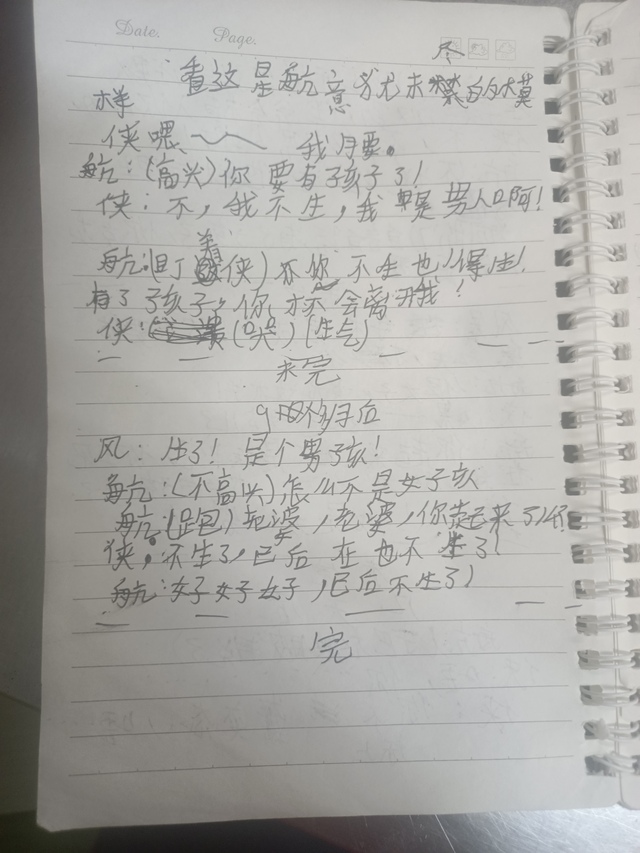 Date. Page.
看这是航意犹未尽的模
样
侠喂、~~ 我月要。
航:(高兴)你要有孩子了!
侠:不,我不生,我是男人口阿!
航:(盯着侠)不你不生也得生!
有了孩子,你才不会离开我!
侠:(哭)(生气)
未完
9月个多月后
风:生了!是个男孩!
航:(不高兴)怎么不是女子孩
航:(跑)老婆,老婆,你起来了
侠,不生了,已后在也不生了!
航:好好好,已后不生了!
完